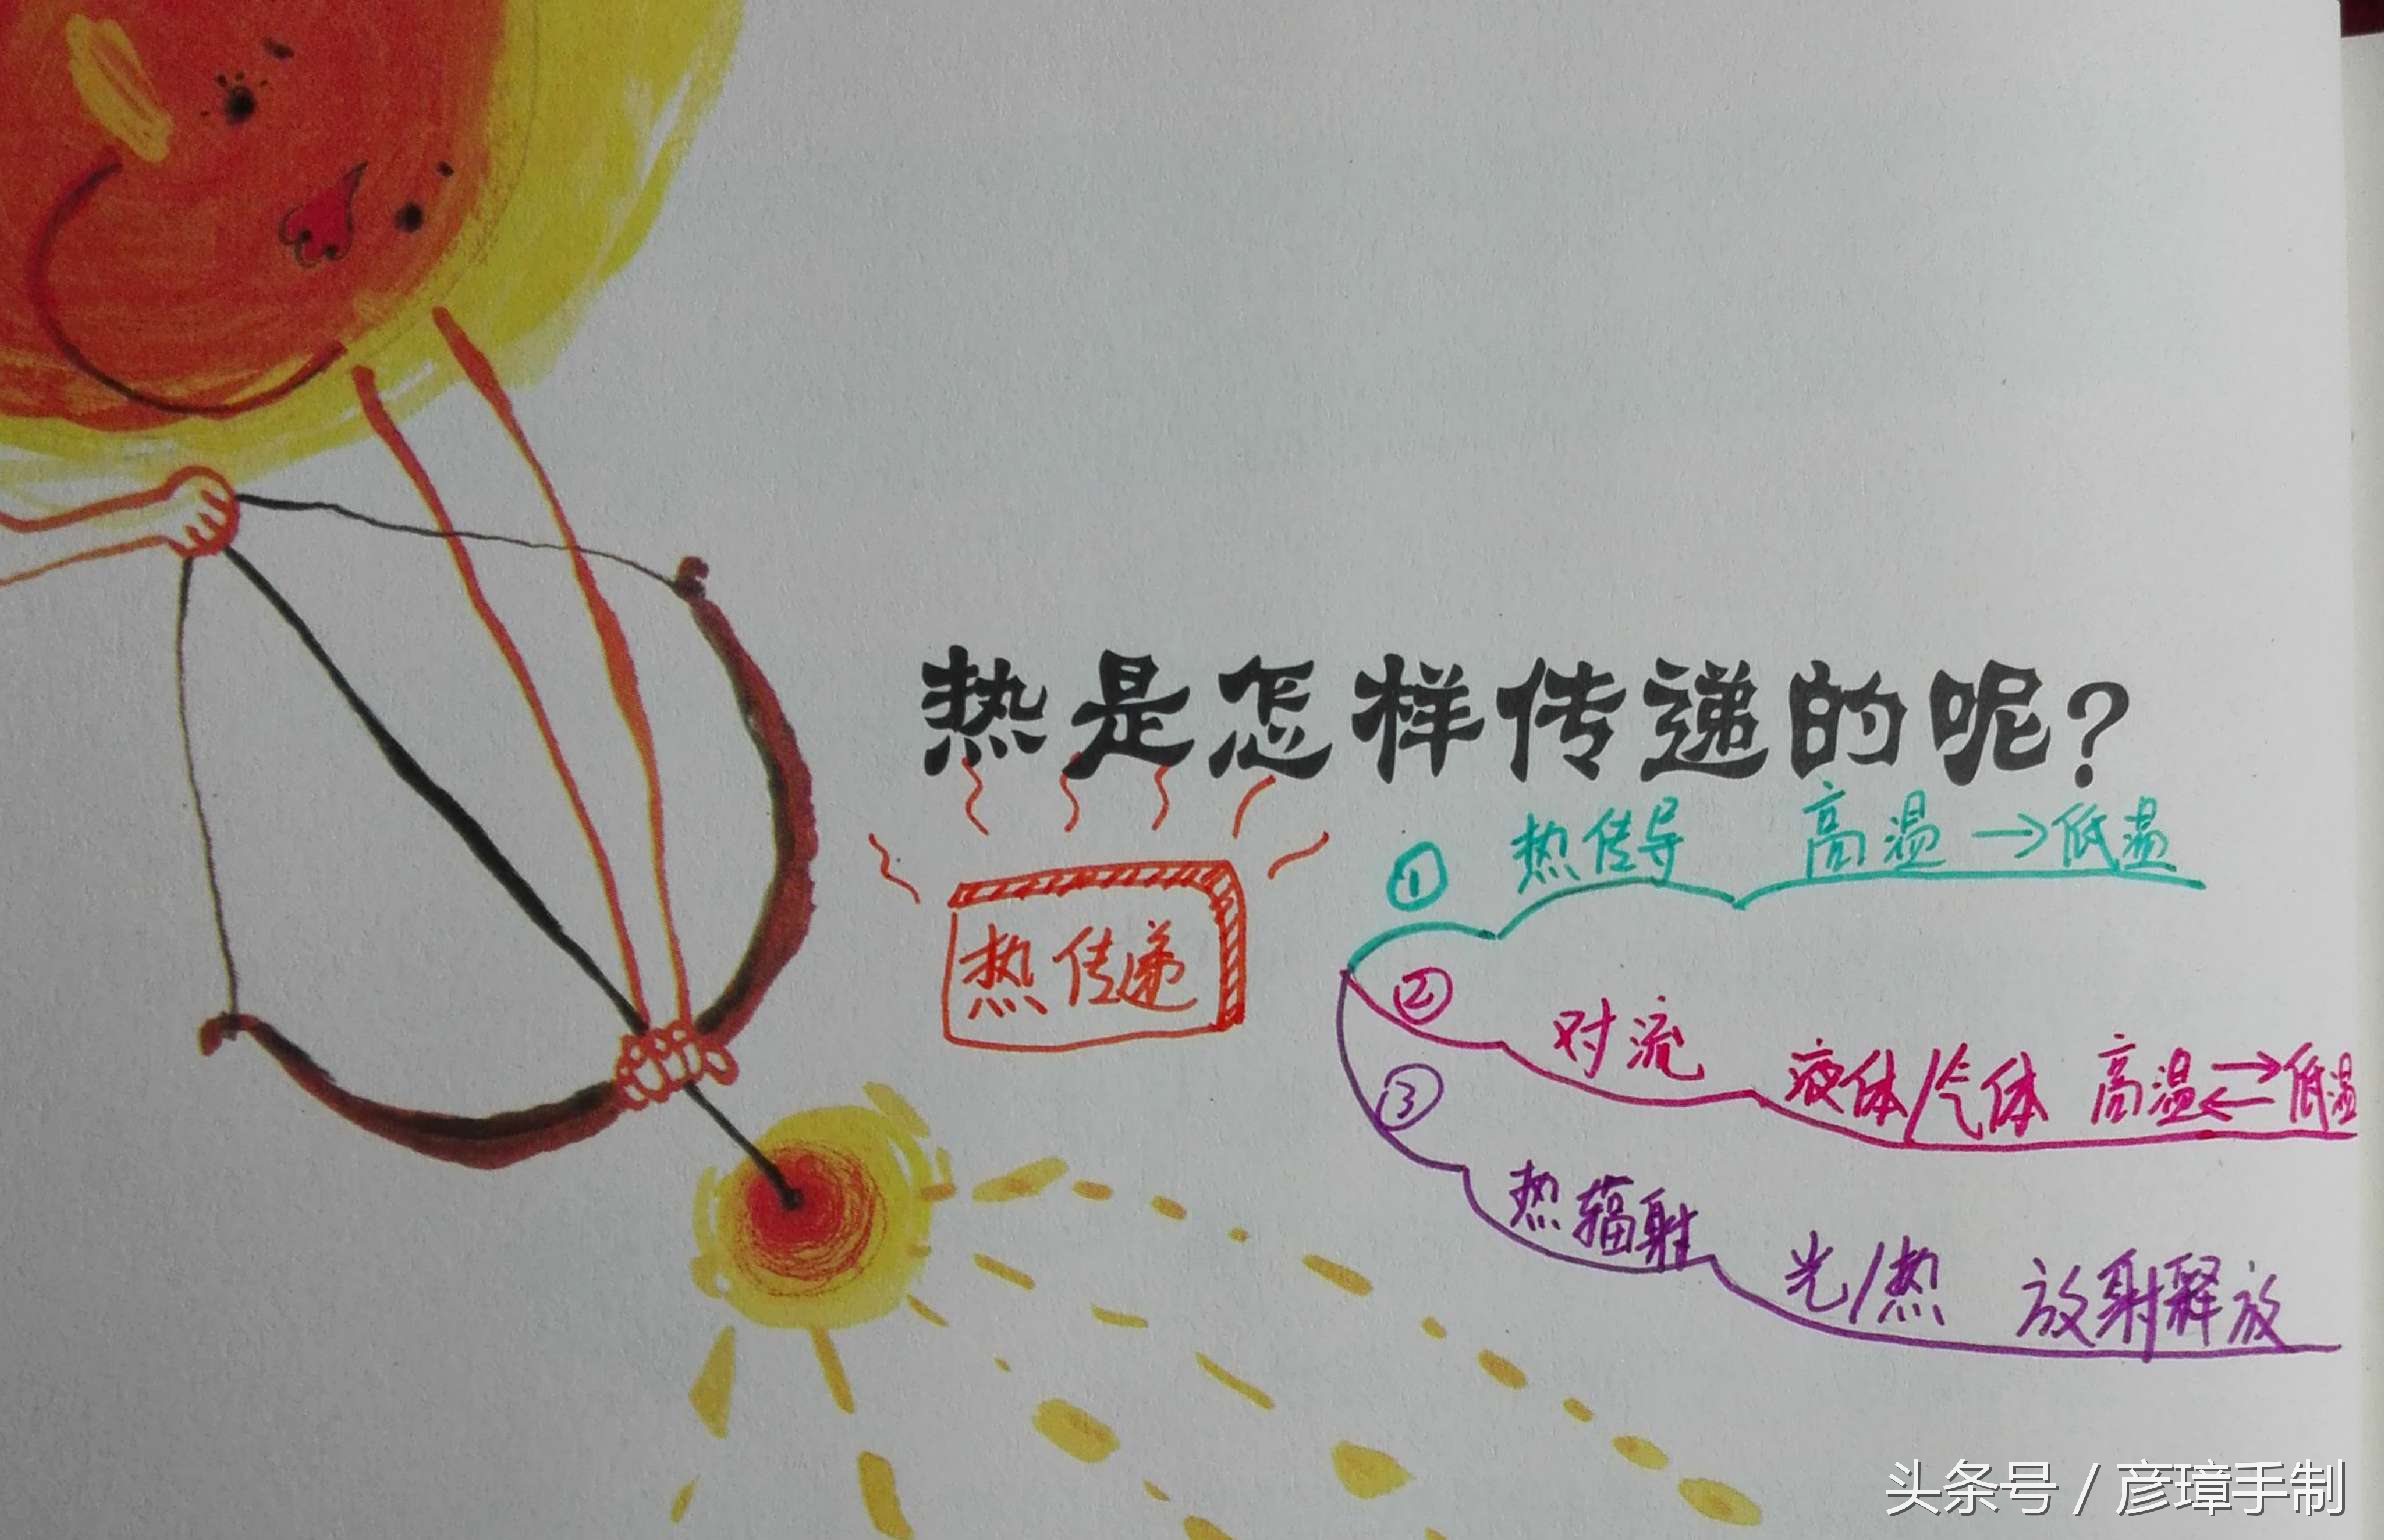 热是怎样传递的呢?
热传递
① 热传导 高温→低温
② 对流 液体/气体 高温⇄低温
③ 热辐射 光/热 放射释放
头条号 / 彦璋手制